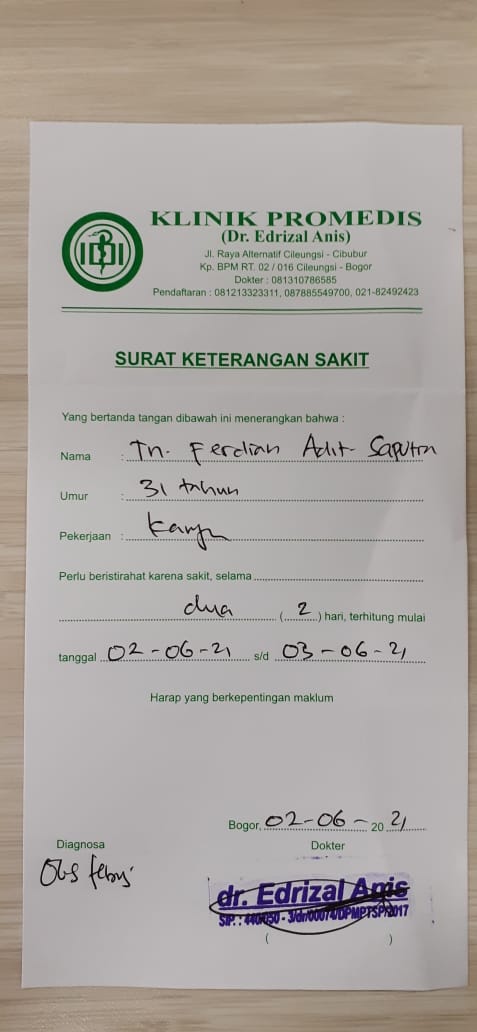 IDI
KLINIK PROMEDIS
(Dr. Edrizal Anis)
Jl. Raya Alternatif Cileungsi - Cibubur
Kp. BPM RT. 02 / 016 Cileungsi - Bogor
Dokter : 081310786585
Pendaftaran : 081213323311, 087885549700, 021-82492423
SURAT KETERANGAN SAKIT
Yang bertanda tangan dibawah ini menerangkan bahwa :
Nama : Tn. Ferdian Adit Saputra
Umur : 31 tahun
Pekerjaan :
Perlu beristirahat karena sakit, selama
dua (2) hari, terhitung mulai
tanggal 02-06-21 s/d 03-06-21
Harap yang berkepentingan maklum
Bogor, 02-06-2021
Diagnosa Dokter
Obs febris
dr. Edrizal Anis
( )